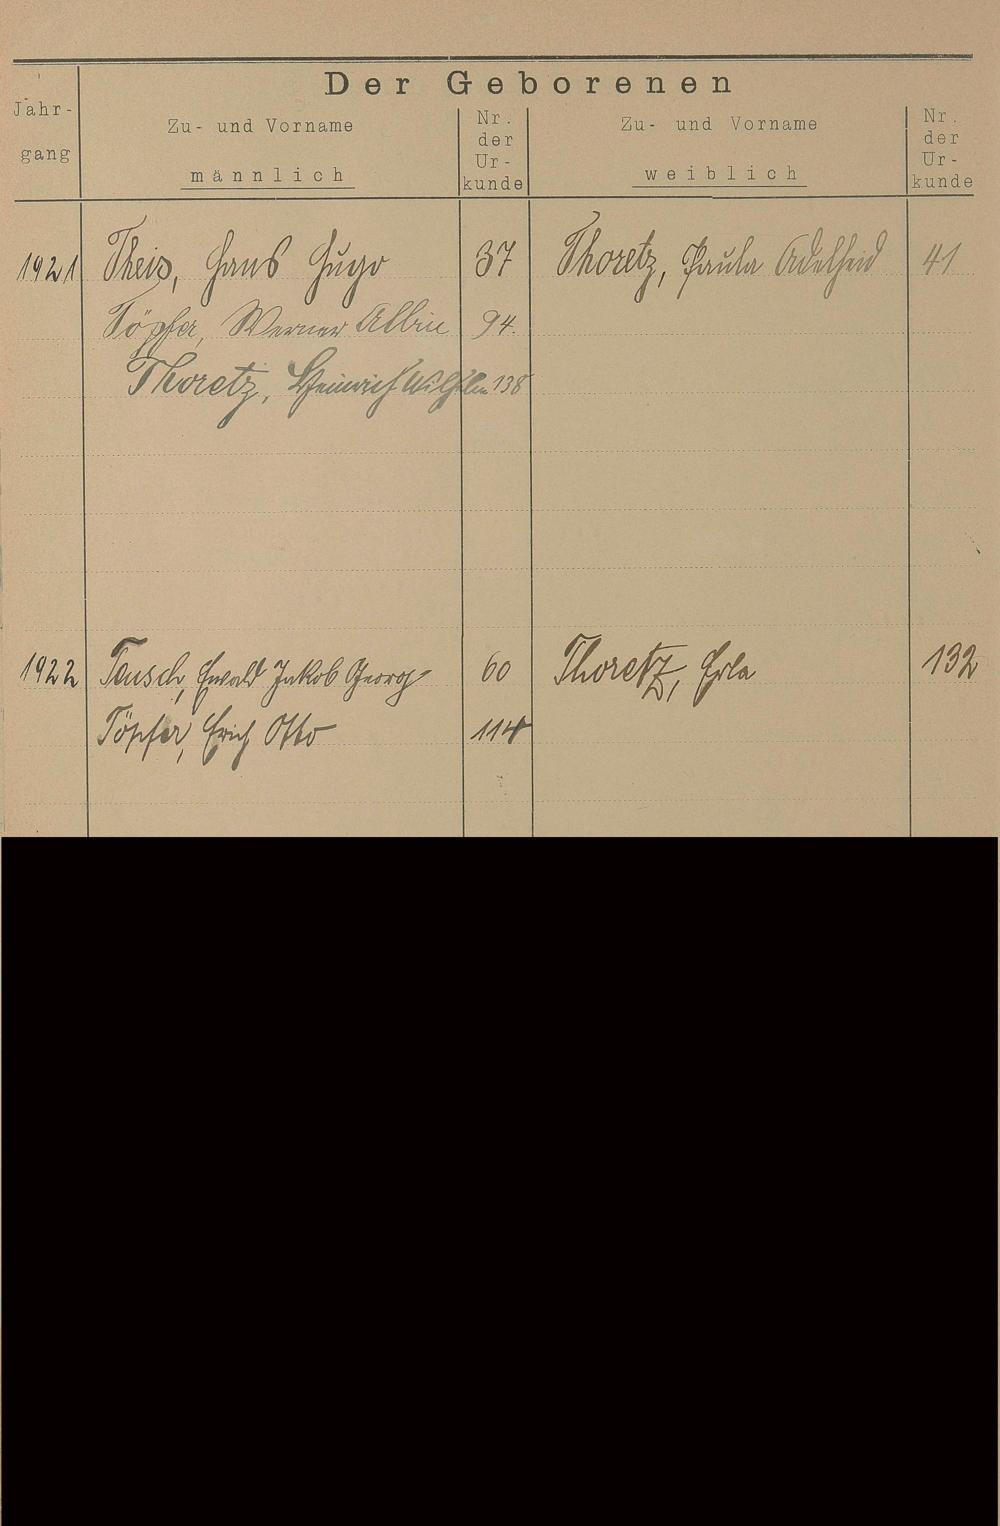 Der Geborenen
Jahr-
gang
Zu- und Vorname
männlich
Nr.
der
Ur-
kunde
Zu- und Vorname
weiblich
Nr.
der
Ur-
kunde
1921 Theis, Hans Hugo 37 Thoretz, Paula Adelheid 41
Töpfer, Werner Albin 94.
Thoretz, Heinrich Wilhelm 138
1922 Teusch, Ewald Jakob Georg 60 Thoretz, Erla 132
Töpfer, Erich Otto 114